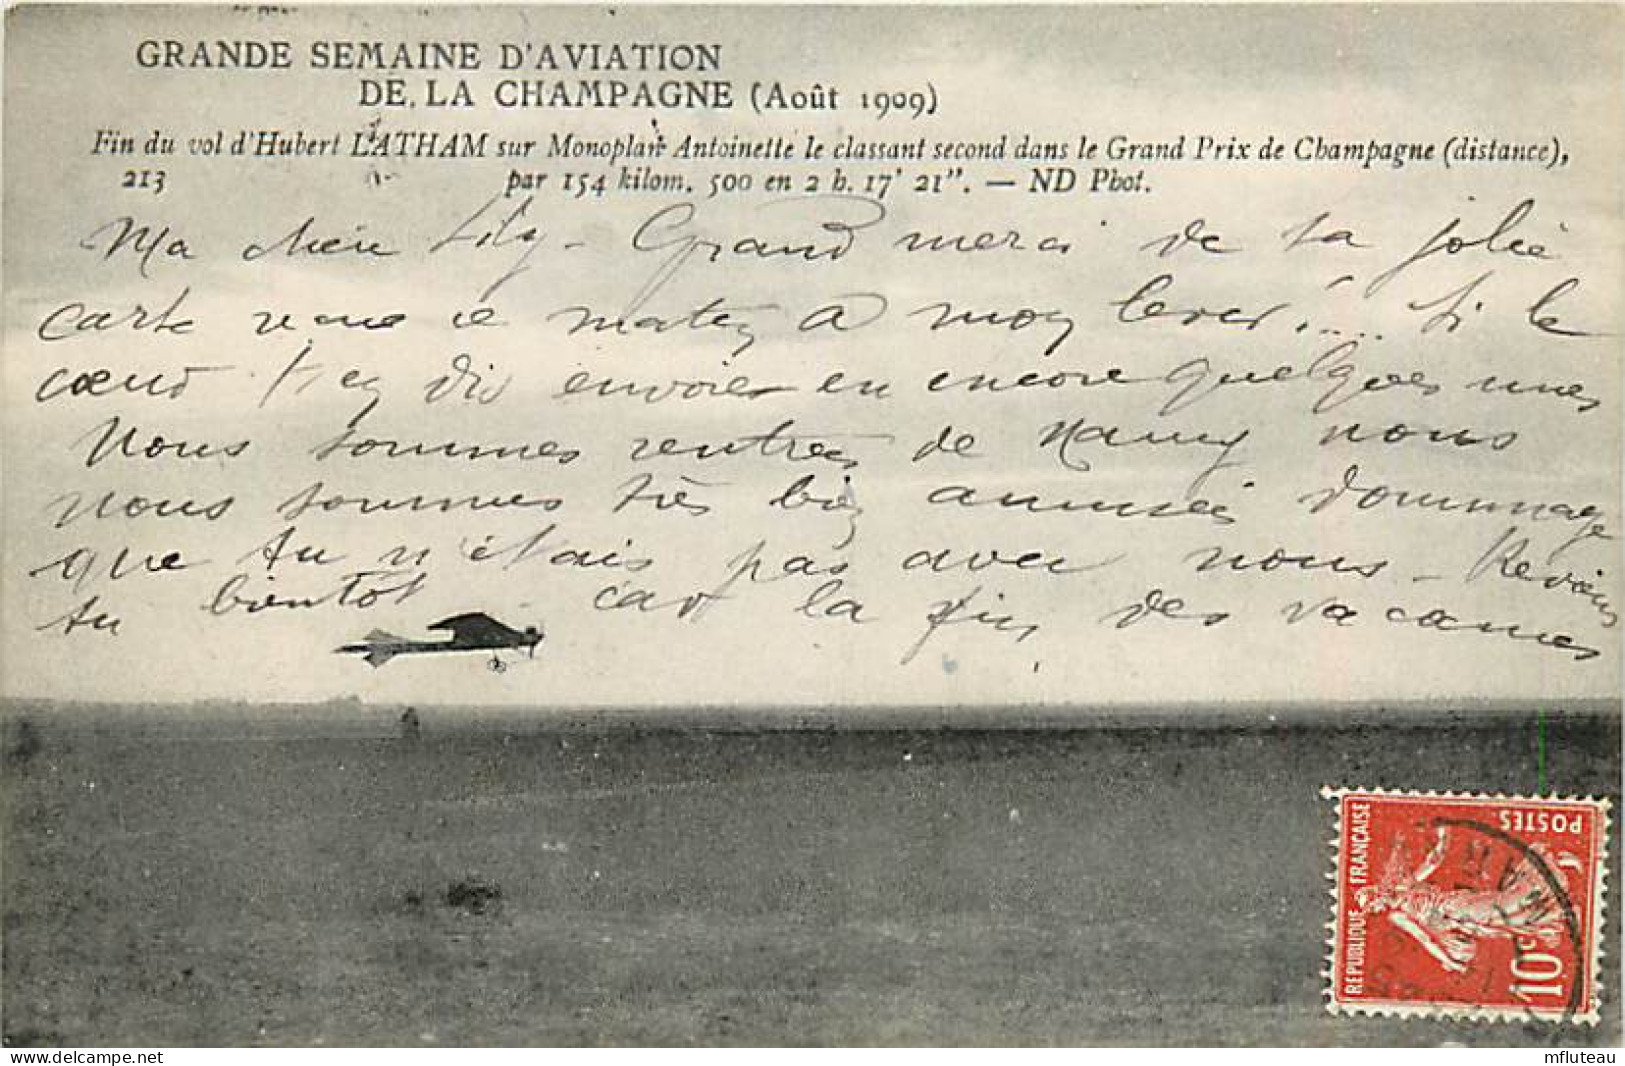 GRANDE SEMAINE D'AVIATION
DE LA CHAMPAGNE (Août 1909)
Fin du vol d'Hubert LATHAM sur Monoplan Antoinette le classant second dans le Grand Prix de Champagne (distance),
213 par 154 kilom. 500 en 2 h. 17' 21". — ND Phot.
Ma chère Lily - Grand merci de ta jolie
carte reçue ce matin à mon lever!... Si le
cœur t'en dis envoies en encore quelques unes
Nous sommes rentrés de Nancy nous
nous sommes très bien amusés dommage
que tu n'étais pas avec nous - Reviens
tu bientôt car la fin des vacances
POSTES
REPUBLIQUE FRANÇAISE
10c
© delcampe.net
mfluteau